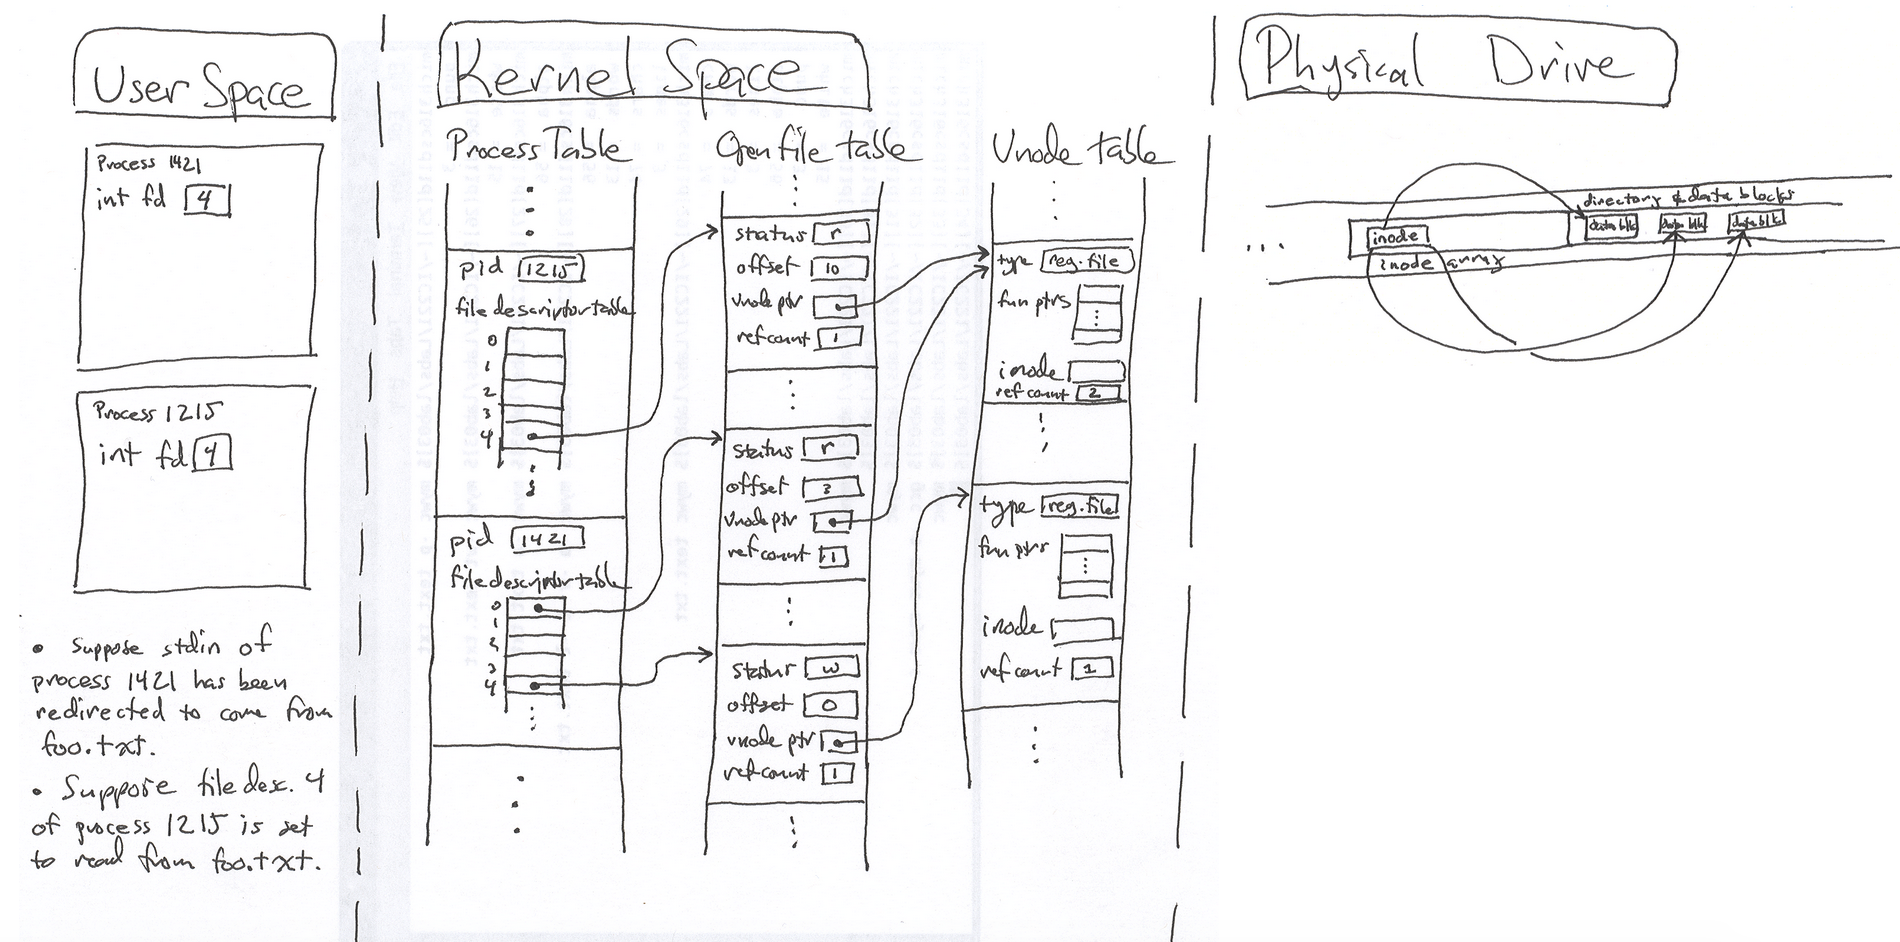 User Space
Process 1421
int fd 4
Process 1215
int fd 4
• Suppose stdin of
process 1421 has been
redirected to come from
foo.txt.
• Suppose file desc. 4
of process 1215 is set
to read from foo.txt.
Kernel Space
Process Table
pid 1215
file descriptor table
0
1
2
3
4
pid 1421
file descriptor table
0
1
2
3
4
Open file table
status r
offset 10
vnode ptr
ref count 1
status r
offset 3
vnode ptr
ref count 1
status w
offset 0
vnode ptr
ref count 1
Vnode table
type reg. file
fun ptrs
inode
ref count 2
type reg. file
fun ptrs
inode
ref count 1
Physical Drive
directory & data blocks
inode
data blk
data blk
data blk
inode array